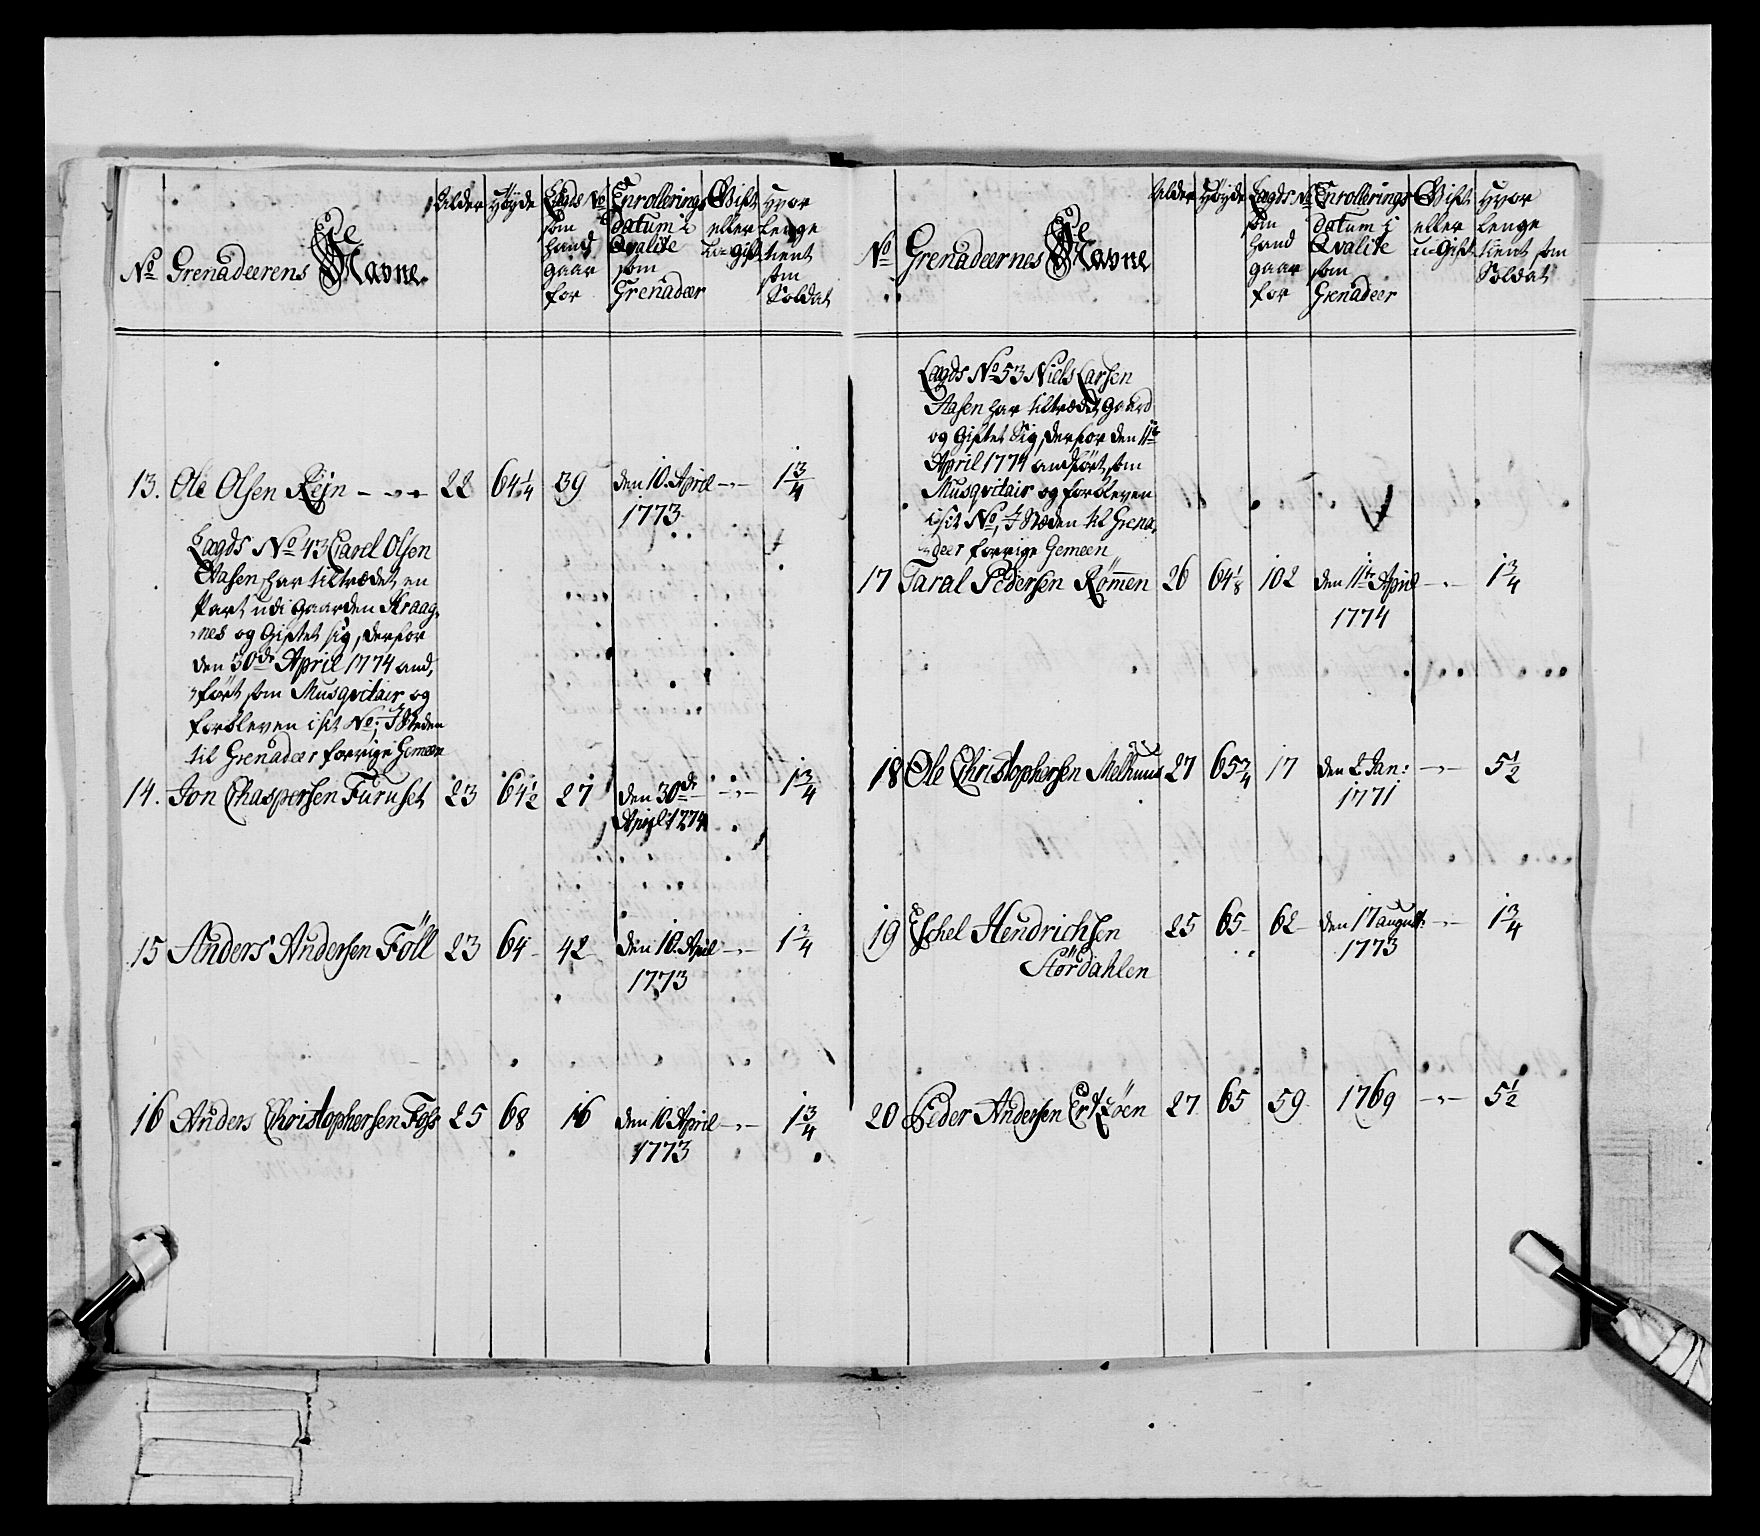 No Grenadeerens Navne
Alder
Høyde
Lægds No
som
hand
gaar
for
Enrollerings
datum i
Qvalite
som
Grenadeer
Gift
eller
u-Gift
Hvor
Lenge
tient
som
Soldat
13. Ole Olsen Rejn 22 64 1/4 39 den 10. April 1 3/4
1773
Lægds No 43 Carel Olsen
Aasen har tiltrædet en
Part udi Gaarden Kraag-
nes og Giftet sig, derfor
den 30de April 1774 and-
ført som Musqvitair og
forbleven i sit No; I Steden
til Grenadeer forrige Gemeen
14. Jon Chaspersen Furuset 23 64 1/2 27 den 30de 1 3/4
April 1774
15 Anders Andersen Föll 23 64 42 den 10. April 1 3/4
1773
16 Anders Christophersen Foss 25 68 16 den 10 April 1 3/4
1773
No Grenadeernes Navne
Alder
Høyde
Lægds No
som
hand
gaar
for
Enrollerings
datum i
Qvalite
som
Grenadeer
Gift
eller
u-Gift
Hvor
Lenge
tient som
Soldat
Lægds No 53 Niels Larsen
Aasen har tiltrædet Gaard
og Giftet Sig, derfor den 11te
April 1774 andført som
Musqvitair og forbleven
i sit No, I Stæden til Grena-
deer forrige Gemeen
17 Taral Pedersen Römen 26 64 1/8 102 den 11te April 1 3/4
1774
18 Ole Christophersen Melhuus 27 65 3/4 17 den 2 Jan: 5 1/2
1771
19 Eschel Hendrichsen 25 65 62 den 17 august: 1 3/4
Stördahlen 1773
20 Peder Andersen Ertzöen 27 65 59 1769 5 1/2